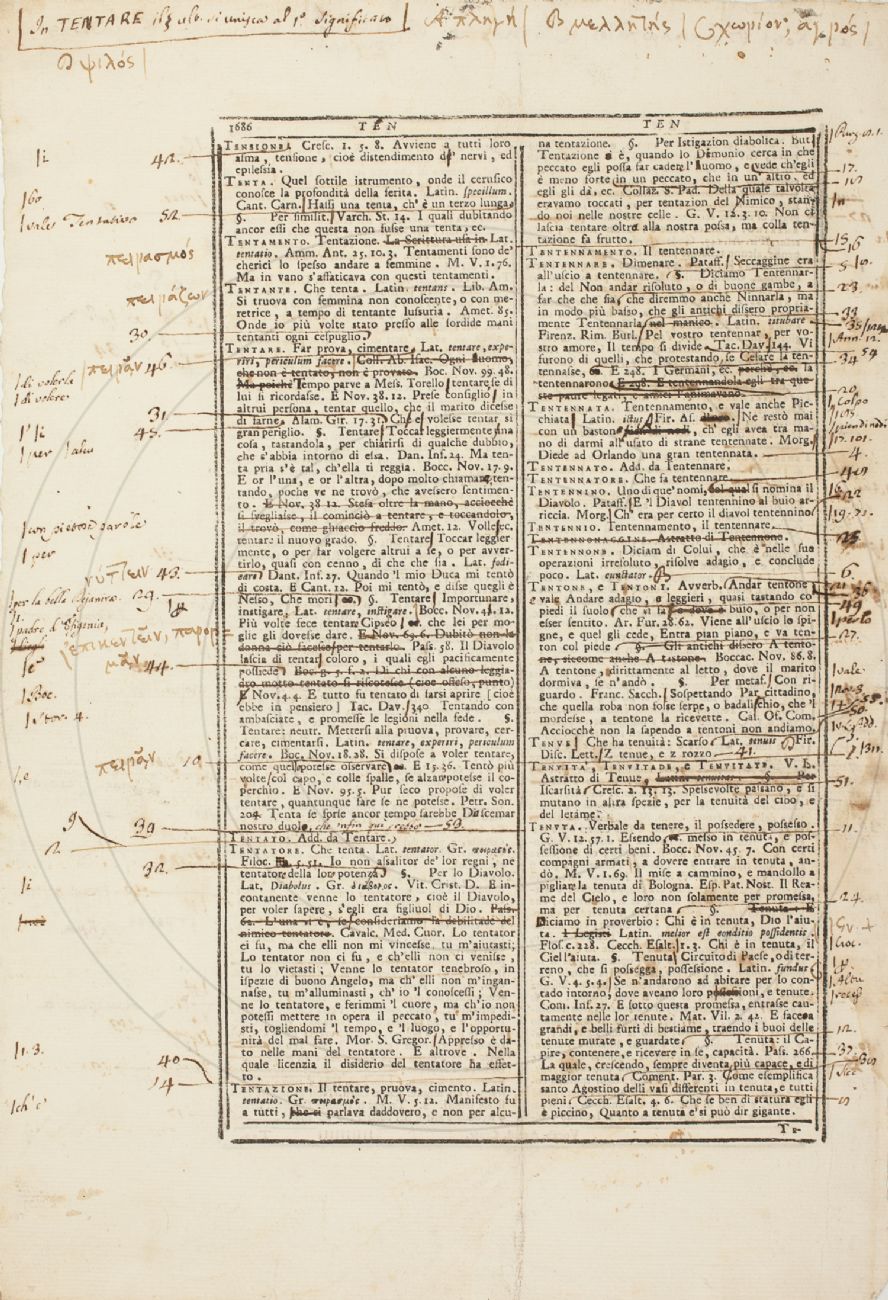 In TENTARE il § ult. si unisca al 1° significato
A πληγή | B μελλητής | C χωρίον, ἀγρός |
D ψιλός |
1686 TEN TEN
TENSIONE. Cresc. 1. 5. 8. Avviene a tutti loro
asma, tensione, cioè distendimento de' nervi, ed
epilessia.
TENTA. Quel sottile istrumento, onde il cerusico
conosce la profondità della ferita. Latin. specillum.
Cant. Carn. Hassi una tenta, ch'è un terzo lunga.
§. Per similit. Varch. St. 14. I quali dubitando
ancor essi che questa non fusse una tenta, ec.
TENTAMENTO. Tentazione. La Scrittura usa in Lat.
tentatio. Amm. Ant. 25. 10. 3. Tentamenti sono de'
cherici lo spesso andare a femmine M. V. 1. 76.
Ma in vano s'affaticava con questi tentamenti.
TENTANTE. Che tenta. Latin. tentans. Lib. Am.
Si truova con femmina non conoscente, o con me-
retrice, a tempo di tentante lussuria. Amet. 85.
Onde io più volte stato presso alle sordide mani
tentanti ogni cespuglio.
TENTARE. Far prova, cimentare. Lat. tentare, expe-
riri, periculum facere. Coll. Ab. Isac. Ogni huomo,
che non è tentato, non è provato. Boc. Nov. 99. 48.
Ma poichè Tempo parve a Mess. Torello tentare se di
lui si ricordasse. E Nov. 38. 12. Prese consiglio in
altrui persona, tentar quello, che il marito dicesse
di farne. Alam. Gir. 17. 31. Che volesse tentar si
gran periglio. §. Tentare Toccar leggiermente una
cosa, tastandola, per chiarirsi di qualche dubbio,
che s'abbia intorno di essa. Dan. Inf. 24. Ma ten-
ta pria s'è tal, ch'ella ti reggia. Bocc. Nov. 17. 9.
E or l'una, e or l'altra, dopo molto chiamare ten-
tando, poche ve ne trovò, che avessero sentimen-
to. E Nov. 38 12. Stesa oltre la mano, acciocchè
si svegliasse, il cominciò a tentare, e toccandolo,
il trovò, come ghiaccio freddo. Amet. 12. Volle ec.
tentare il nuovo grado. §. Tentare Toccar leggier
mente, o per far volgere altrui a se, o per avver-
tirlo, quasi con cenno, di che che sia. Lat. fodi-
care. Dant. Inf. 27. Quando 'l mio Duca mi tentò
di costa. E Cant. 12. Poi mi tentò, e disse quegli è
Nesso, Che morì ec. §. Tentare Importunare,
instigare, Lat. tentare, instigare. Bocc. Nov. 43. 12.
Più volte fece tentare Cipseo ec. che lei per mo-
glie gli dovesse dare. E Nov. 69. 6. Dubitò non la
donna ciò facesse per tentarlo. Pass. 58. Il Diavolo
lascia di tentar coloro, i quali egli pacificamente
possiede. Boc. g. 5. f. 2. Di chi con alcuno leggia-
dro motto tentato si riscotesse (cioè offeso, punto)
E Nov. 4. 4. E tutto fu tentato di farsi aprire [cioè
ebbe in pensiero] Tac. Dav. 340 Tentando con
ambasciate, e promesse le legioni nella fede. §.
Tentare: neutr. Mettersi alla pruova, provare, cer-
care, cimentarsi. Latin. tentare, experiri, periculum
facere. Boc. Nov. 18. 28. Si dispose a voler tentare,
come quel potesse osservare ec. E 15. 36. Tentò più
volte col capo, e colle spalle, se alzar potesse il co-
perchio. E Nov. 95. 5. Pur seco propose di voler
tentare, quantunque fare se ne potesse. Petr. Son.
204. Tenta se forse ancor tempo sarebbe Da scemar
nostro duolo, che infin qui cresce 53.
TENTATO. Add. da Tentare.
TENTATORE. Che tenta. Lat. tentator. Gr. πειραστής.
Filoc. 5. 51. Io non assalitor de' lor regni, ne
tentatore della lor potenza. §. Per lo Diavolo.
Lat. Diabolus. Gr. διάβολος. Vit. Crist. D. E in-
contanente venne lo tentatore, cioè il Diavolo,
per voler sapere, s'egli era figliuol di Dio. Pass.
62. L'una si è, se consideriamo la debilitade del
nimico tentatore. Cavalc. Med. Cuor. Lo tentator
ci fu, ma che elli non mi vincesse, tu m'aiutasti;
Lo tentator non ci fu, e ch'elli non ci venisse,
tu lo vietasti; Venne lo tentator tenebroso, in
ispezie di buono Angelo, ma ch'elli non m'ingan-
nasse, tu m'alluminasti, ch'io 'l conoscessi; Ven-
ne lo tentatore, e ferimmi 'l cuore, ma ch'io non
potessi mettere in opera il peccato, tu m'impedi-
sti, togliendomi 'l tempo, e 'l luogo, e l'opportu-
nità del mal fare. Mor. S. Gregor. Appresso è da-
to nelle mani del tentatore. E altrove. Nella
quale licenzia il disiderio del tentatore ha effet-
to.
TENTAZIONE. Il tentare, pruova, cimento. Latin.
tentatio. Gr. πειρασμός. M. V. 5. 12. Manifesto fu
a tutti, che si parlava daddovero, e non per alcu-
na tentazione. §. Per Istigazion diabolica. But.
Tentazione è, quando lo Dimonio cerca in che
peccato egli possa far cadere l'huomo, e vede ch'egli
è meno forte in un peccato, che in un'altro, ed
egli gli dà, ec. Collaz. S. Pad. Della quale talvolta
eravamo toccati, per tentazion del Nimico, stan-
do noi nelle nostre celle. G. V. 12. 3. 10. Non ci
lascia tentare oltre alla nostra possa, ma colla ten-
tazione fa frutto.
TENTENNAMENTO. Il tentennare.
TENTENNARE. Dimenare. Pataff. Seccaggine era
all'uscio a tentennare. §. Diciamo Tentennar-
la: del Non andar risoluto, o di buone gambe, a
far che che sia, che diremmo anche Ninnarla, ma
in modo più basso, che gli antichi dissero propria-
mente Tentennarla nel manico. Latin. titubare
Firenz. Rim. Burl. Pel vostro tentennar, per vo-
stro amore, Il tempo si divide. Tac. Dav. 144. Vi
furono di quelli, che protestando, se Cesare la ten-
tennasse, ec. E 248. I Germani, ec. perchè, ec. la
tentennarono. E 298. E tentennandola egli tra que-
ste paure legati, e amici l'animavano.
TENTENNATA. Tentennamento, e vale anche Pic-
chiata. Latin. ictus. Fir. As. Ne restò mai
con un bastone, ch'egli avea tra ma-
no di darmi all'usato di strane tentennate. Morg.
Diede ad Orlando una gran tentennata.
TENTENNATO. Add. da Tentennare.
TENTENNATORE. Che fa tentennare.
TENTENNINO. Uno di que' nomi, del qual si nomina il
Diavolo. Pataff. E 'l Diavol tentennino al buio ar-
riccia. Morg. Ch'era per certo il diavol tentennino
TENTENNIO. Tentennamento, il tentennare.
TENTENNONAGGINE. Astratto di Tentennone.
TENTENNONE. Diciam di Colui, che è nelle sue
operazioni irresoluto, risolve adagio, e conclude
poco. Lat. cunctator.
TENTONE, e TENTONI. Avverb. Andar tentone
vale Andare adagio, e leggieri, quasi tastando co'
piedi il suolo che si fa dove è buio, o per non
esser sentito. Ar. Fur. 28. 62. Viene all'uscio lo spi-
gne, e quel gli cede, Entra pian piano, e va ten-
ton col piede. §. Gli antichi dissero A tento-
ne, siccome anche A tastone. Boccac. Nov. 86. 8.
A tentone, dirittamente al letto, dove il marito
dormiva, se n'andò. §. Per metaf. Con ri-
guardo. Franc. Sacch. Sospettando Par cittadino,
che quella roba non fosse serpe, o badalischio, che 'l
mordesse, a tentone la ricevette. Gal. Of. Com.
Acciocchè non la sapendo a tentoni non andiamo.
TENVE. Che ha tenuità: Scarso. Lat. tenuis Fir.
Disc. Lett. Z tenue, e z rozzo 41.
TENVITA, TENVITADE, e TENVITATE. V. L.
Astratto di Tenue. Latin. tenuitas. §. Per
Iscarsità. Cresc. 2. 13. 13. Spessevolte paisano, e si
mutano in altra spezie, per la tenuità del cibo, e
del letame.
TENVTA. Verbale da tenere, il possedere, possesso.
G. V. 12. 57. 1. Essendo messo in tenuta, e pos-
sessione di certi beni. Bocc. Nov. 45. 7. Con certi
compagni armati, a dovere entrare in tenuta, an-
dò. M. V. 1. 69. Il mise a cammino, e mandollo a
pigliare la tenuta di Bologna. Esp. Pat. Nost. Il Rea-
me del Cielo, e loro non solamente per promessa,
ma per tenuta certana. §. Tenuta: E
Diciamo in proverbio: Chi è in tenuta, Dio l'aiu-
ta. I Legisti Latin. melior est conditio possidentis.
Flos. c. 228. Cecch. Esalt. 1. 3. Chi è in tenuta, il
Ciel l'aiuta. §. Tenuta Circuito di Paese, o di ter-
reno, che si possegga, possessione. Latin. fundus.
G. V. 4. 5. 4. Se n'andarono ad abitare per lo con-
tado intorno, dove aveano loro possessioni, e tenute.
Com. Inf. 27. E sotto questa promessa, entrasse cau-
tamente nelle lor tenute. Mat. Vil. 2. 42. E facea
grandi, e belli furti di bestiame, traendo i buoi delle
tenute murate, e guardate. §. Tenuta: il Ca-
pire, contenere, e ricevere in se, capacità. Pass. 266.
La quale, crescendo, sempre diventa più capace, e di
maggior tenuta. Coment. Par. 3. Come esemplifica
santo Agostino delli vasi differenti in tenuta, e tutti
pieni. Cecch. Esalt. 4. 6. Che se ben di statura egli
è piccino, Quanto a tenuta e' si può dir gigante.
TE-
42.
vale Tentativo 52.
πειρασμός
πειράζων
30
πειρᾶν 46
di volerla
di volere
31
45.
con pietose parole
per
νύττειν 43.
per la bella Dejanira 29.
padre d'Ifigenia,
44.
Boc.
Nov. 4.
πειρᾶν 10
39
32.
1. 3.
40
14
ch'e'
Purg. 1.
17.
15 16
23.
34 54
20
Colpo
4.
6.
49
27.
vale
51.
11.
24.
12.